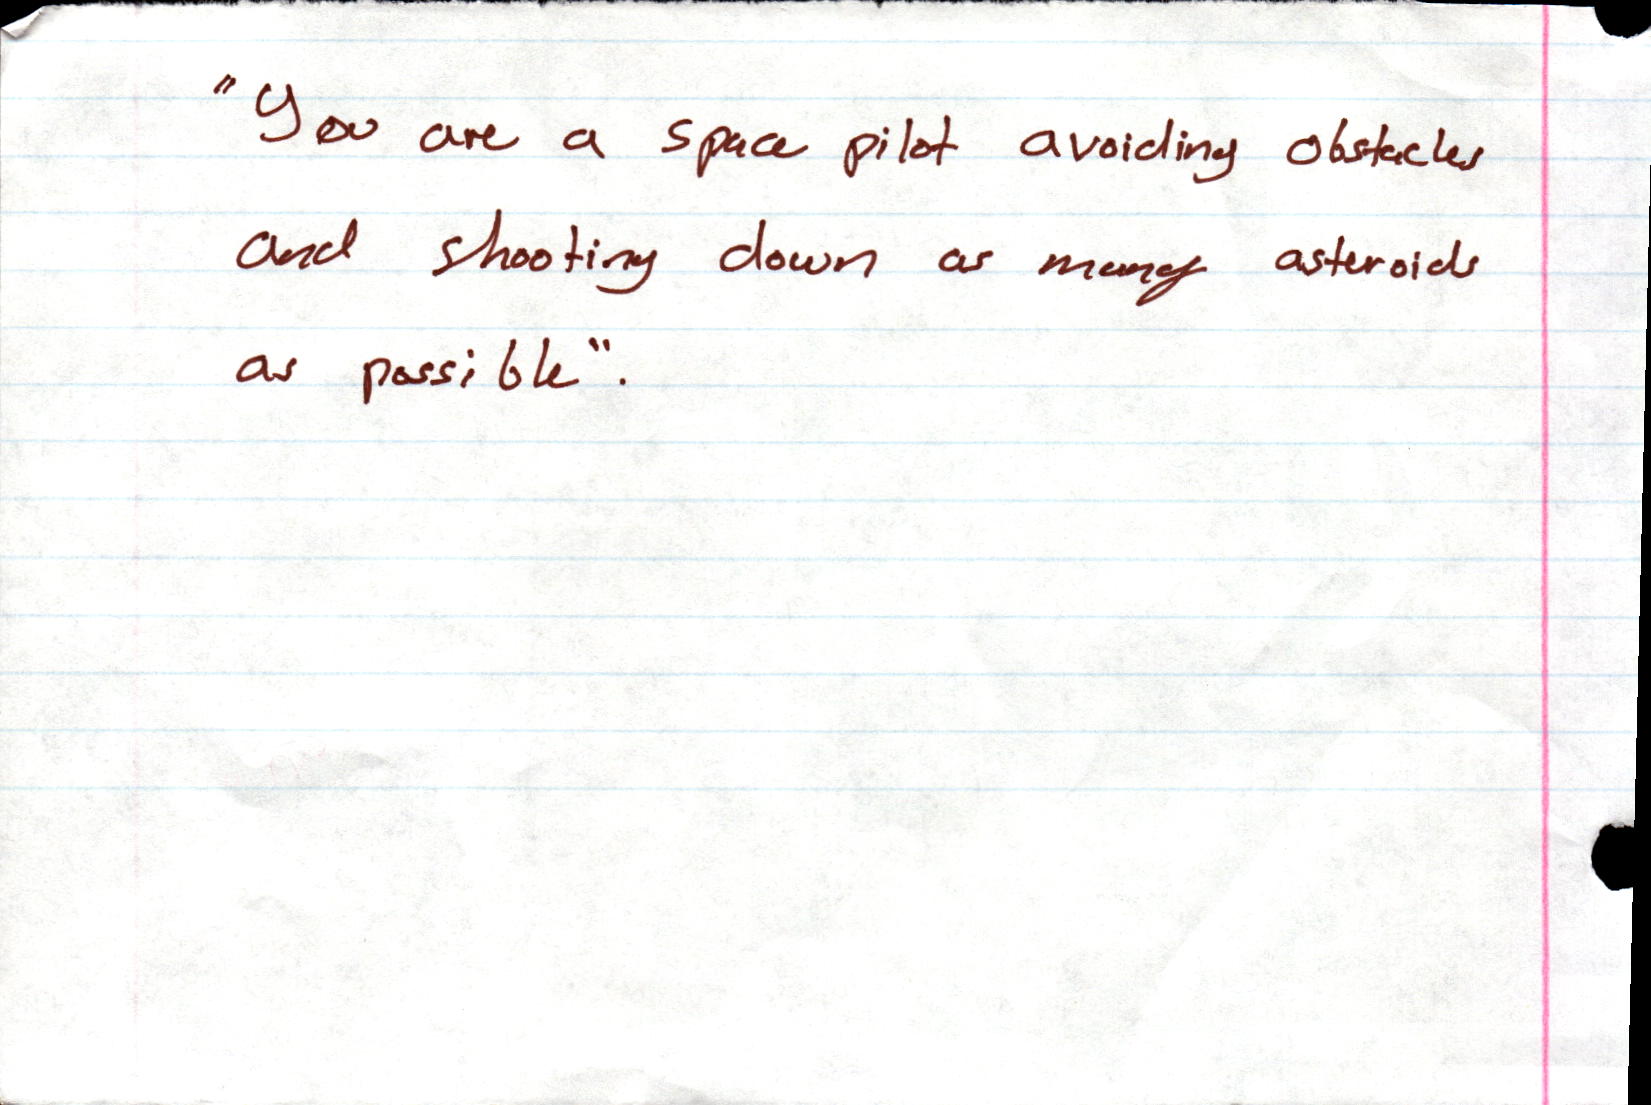 "You are a space pilot avoiding obstacles
and shooting down as many asteroids
as possible".